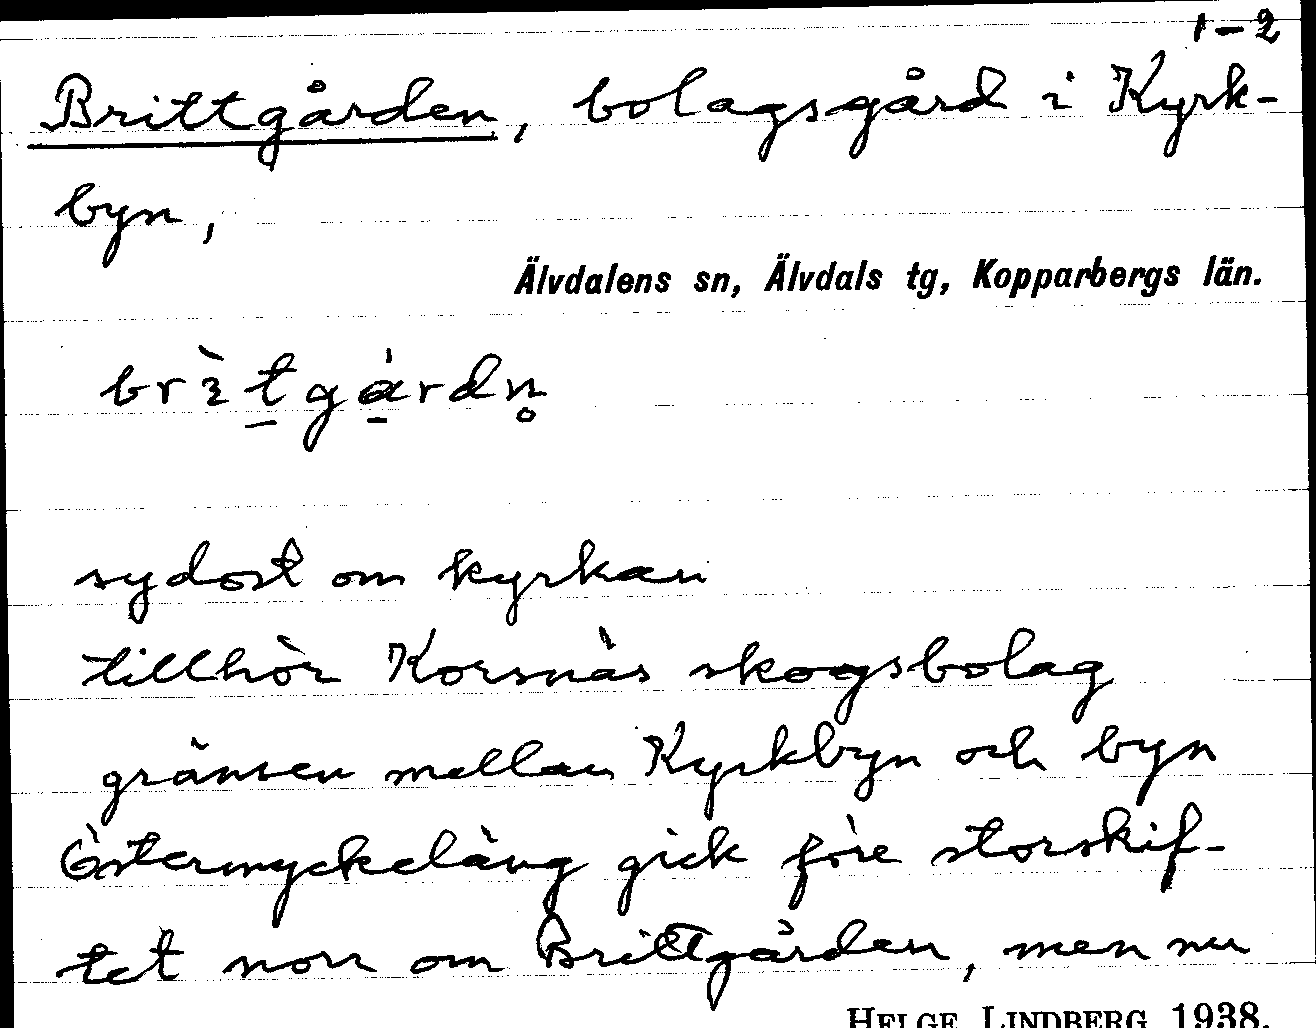 1-2
Brittgården, bolagsgård i Kyrk-
byn,
Älvdalens sn, Älvdals tg, Kopparbergs län.
brìtgárdn̥
sydost om kyrkan
tillhör Korsnäs skogsbolag
gränsen mellan Kyrkbyn och byn
Östermyckeläng gick före storskif-
tet norr om Brittgården, men nu
HELGE LINDBERG 1938.